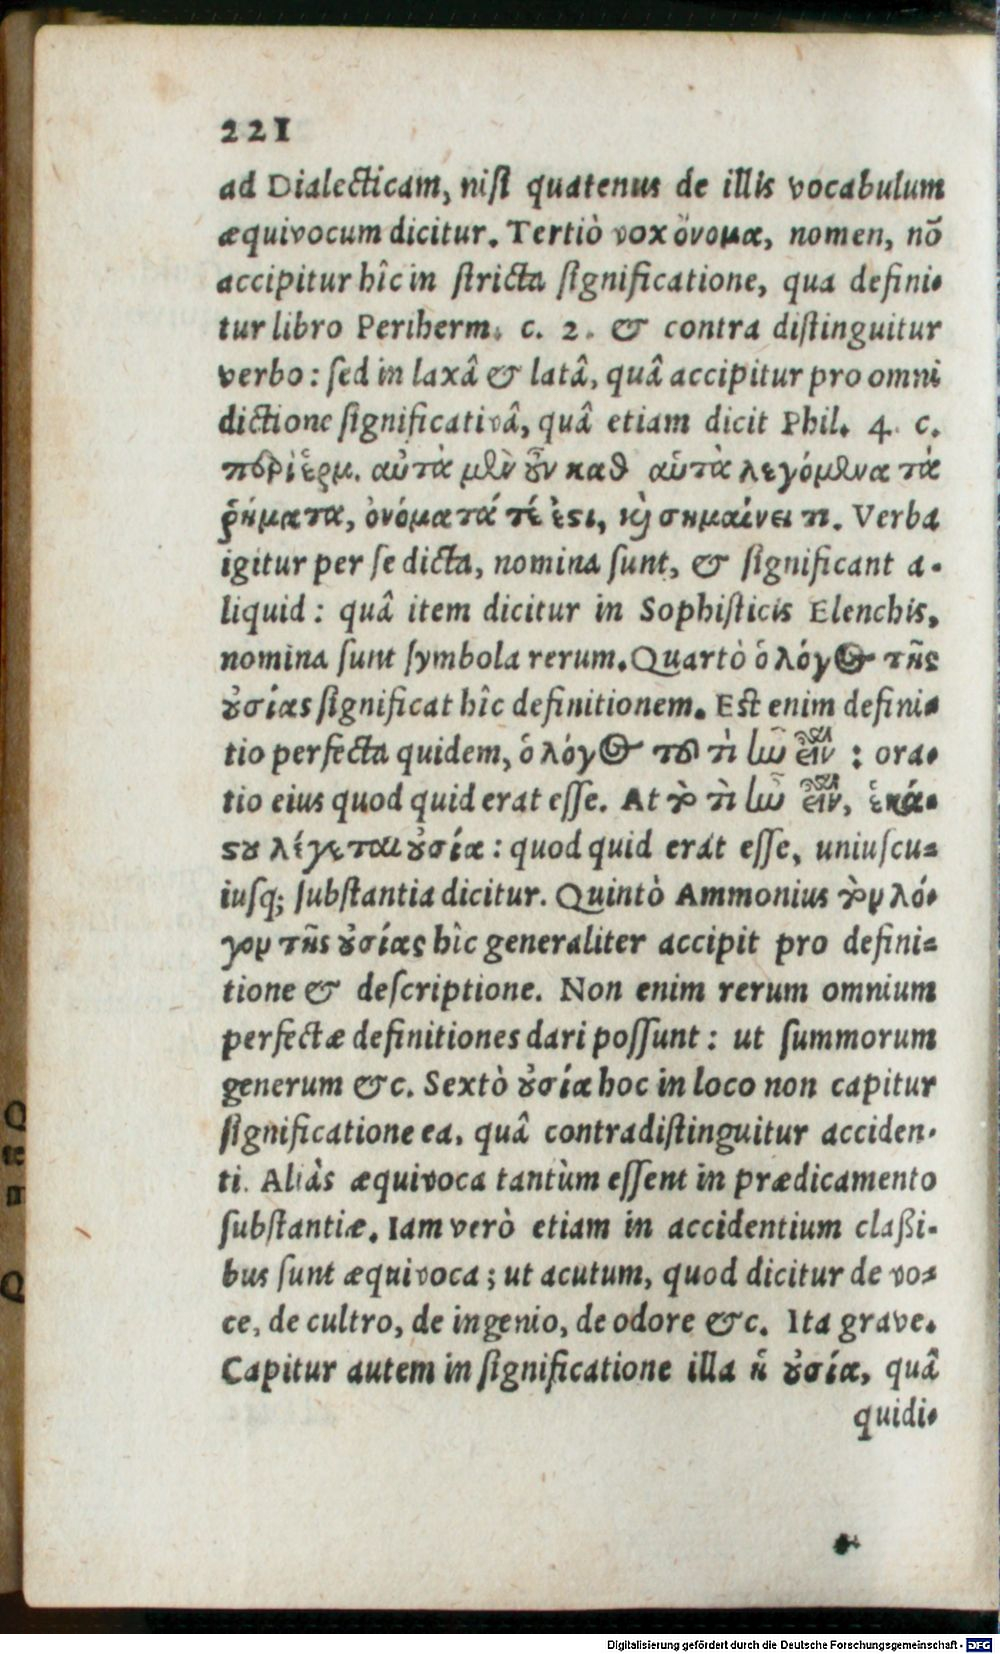 221
ad Dialecticam, nisi quatenus de illis vocabulum
æquivocum dicitur. Tertiò vox ὄνομα, nomen, nõ
accipitur hîc in stricta significatione, qua defini-
tur libro Periherm. c. 2. & contra distinguitur
verbo: sed in laxâ & latâ, quâ accipitur pro omni
dictione significativâ, quâ etiam dicit Phil. 4. c.
περὶ ἑρμ. αὐτὰ μὲν οὖν καθ αὑτὰ λεγόμενα τὰ
ῥήματα, ὀνόματά τέ ἐστι, καὶ σημαίνει τι. Verba
igitur per se dicta, nomina sunt, & significant a-
liquid: quâ item dicitur in Sophisticis Elenchis,
nomina sunt symbola rerum. Quartò ὁ λόγος τῆς
οὐσίας significat hîc definitionem. Est enim defini-
tio perfecta quidem, ὁ λόγος τοῦ τὶ ἦν εἶναι: ora-
tio eius quod quid erat esse. At τὸ τὶ ἦν εἶναι, ἑκά-
στου λέγεται οὐσία: quod quid erat esse, uniuscu-
iusq; substantia dicitur. Quintò Ammonius τὸν λό-
γον τῆς οὐσίας hîc generaliter accipit pro defini-
tione & descriptione. Non enim rerum omnium
perfectæ definitiones dari possunt: ut summorum
generum &c. Sextò οὐσία hoc in loco non capitur
significatione ea, quâ contradistinguitur acciden-
ti. Aliàs æquivoca tantùm essent in prædicamento
substantiæ. Iam verò etiam in accidentium claßi-
bus sunt æquivoca; ut acutum, quod dicitur de vo-
ce, de cultro, de ingenio, de odore &c. Ita grave.
Capitur autem in significatione illa ἡ οὐσία, quâ
quidi-
Digitalisierung gefördert durch die Deutsche Forschungsgemeinschaft - DFG